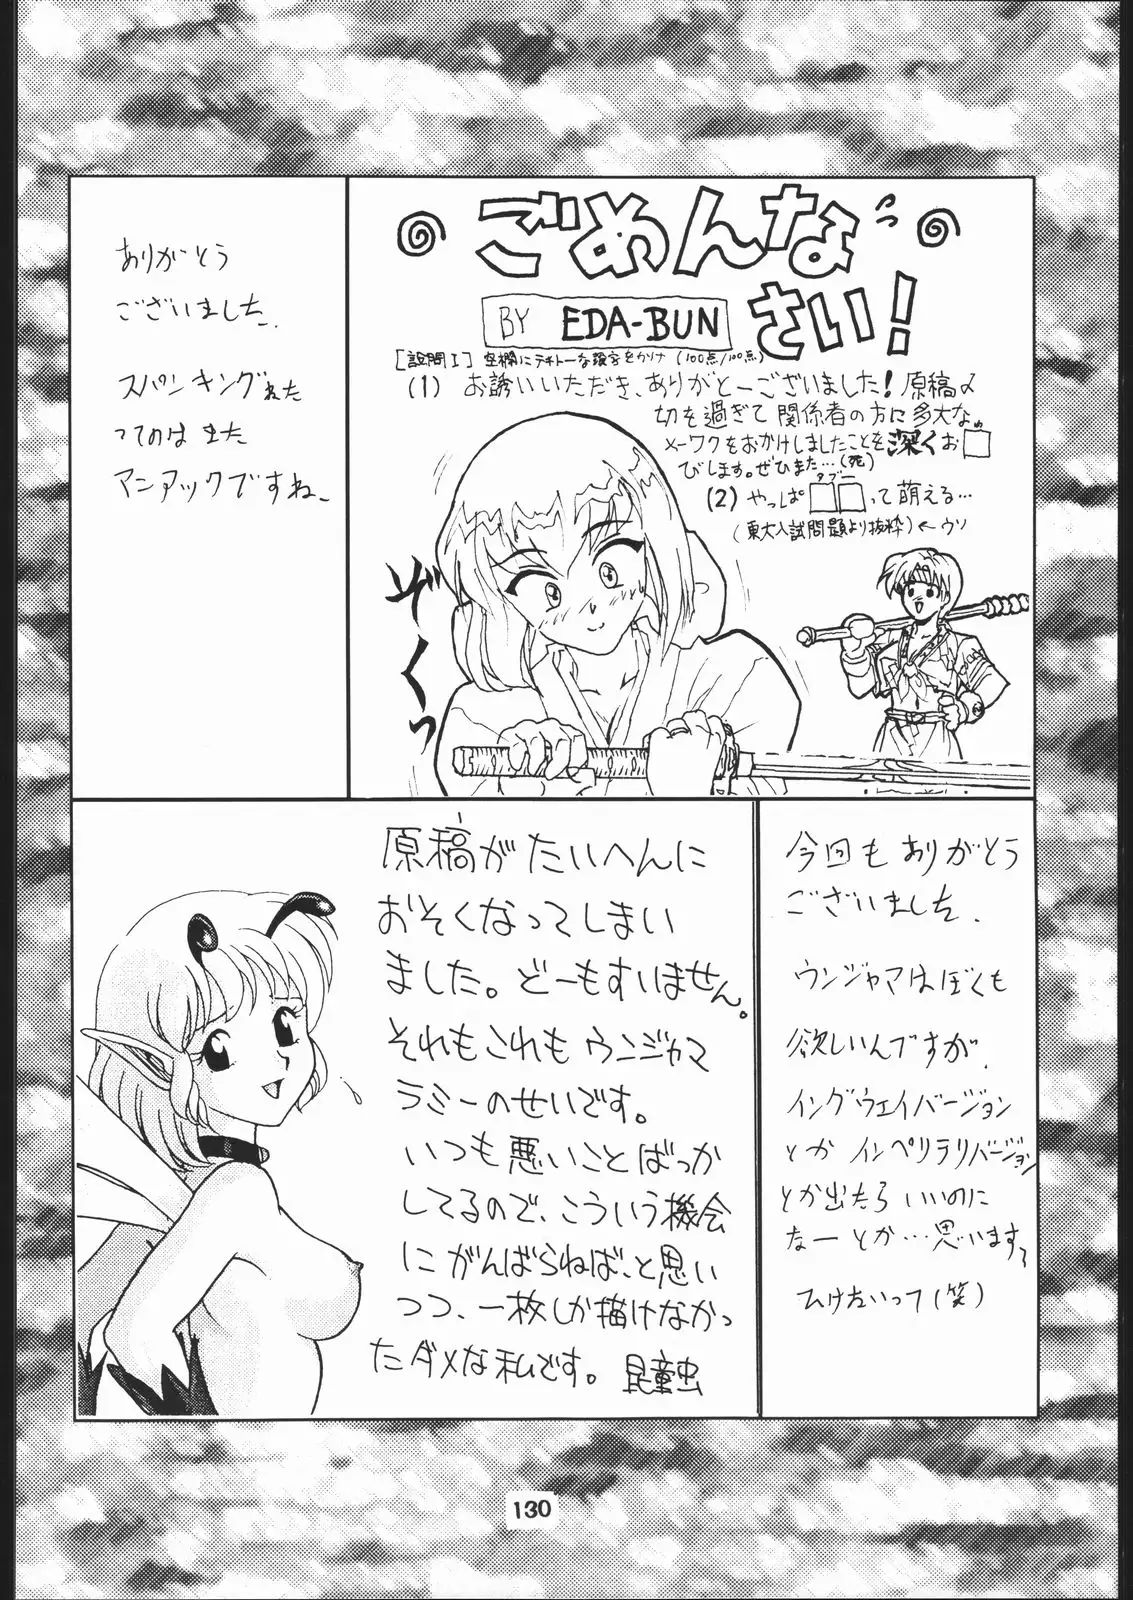 ごめんな
さい!
BY EDA-BUN
[設問I] 空欄にテキトーな漢字をかけ (100点/100点)
(1) お誘いいただき、ありがとーございました! 原稿〆
切を過ぎて関係者の方に多大な
メーワクをおかけしましたことを深くお□
びします。ぜひまた…(死)
タブー
(2) やっぱ□□って萌える…
(東大入試問題より抜粋) ← ウソ
ぞくっ
ありがとう
ございました。
スパンキングねた
ってのは また
マニアックですね。
原稿がたいへんに
おそくなってしまい
ました。どーもすいません。
それもこれも ウンジャマ
ラミーのせいです。
いつも悪いことばっか
してるので、こういう機会
にがんばらねば、と思い
つつ、一枚しか描けなかっ
たダメな私です。 昆童虫
今回も ありがとう
ございました。
ウンジャマはぼくも
欲しいんですが、
イングウェイバージョン
とか インペリテリバージョン
とか出たら いいのに
なーとか…思います。
ひけないって(笑)
130